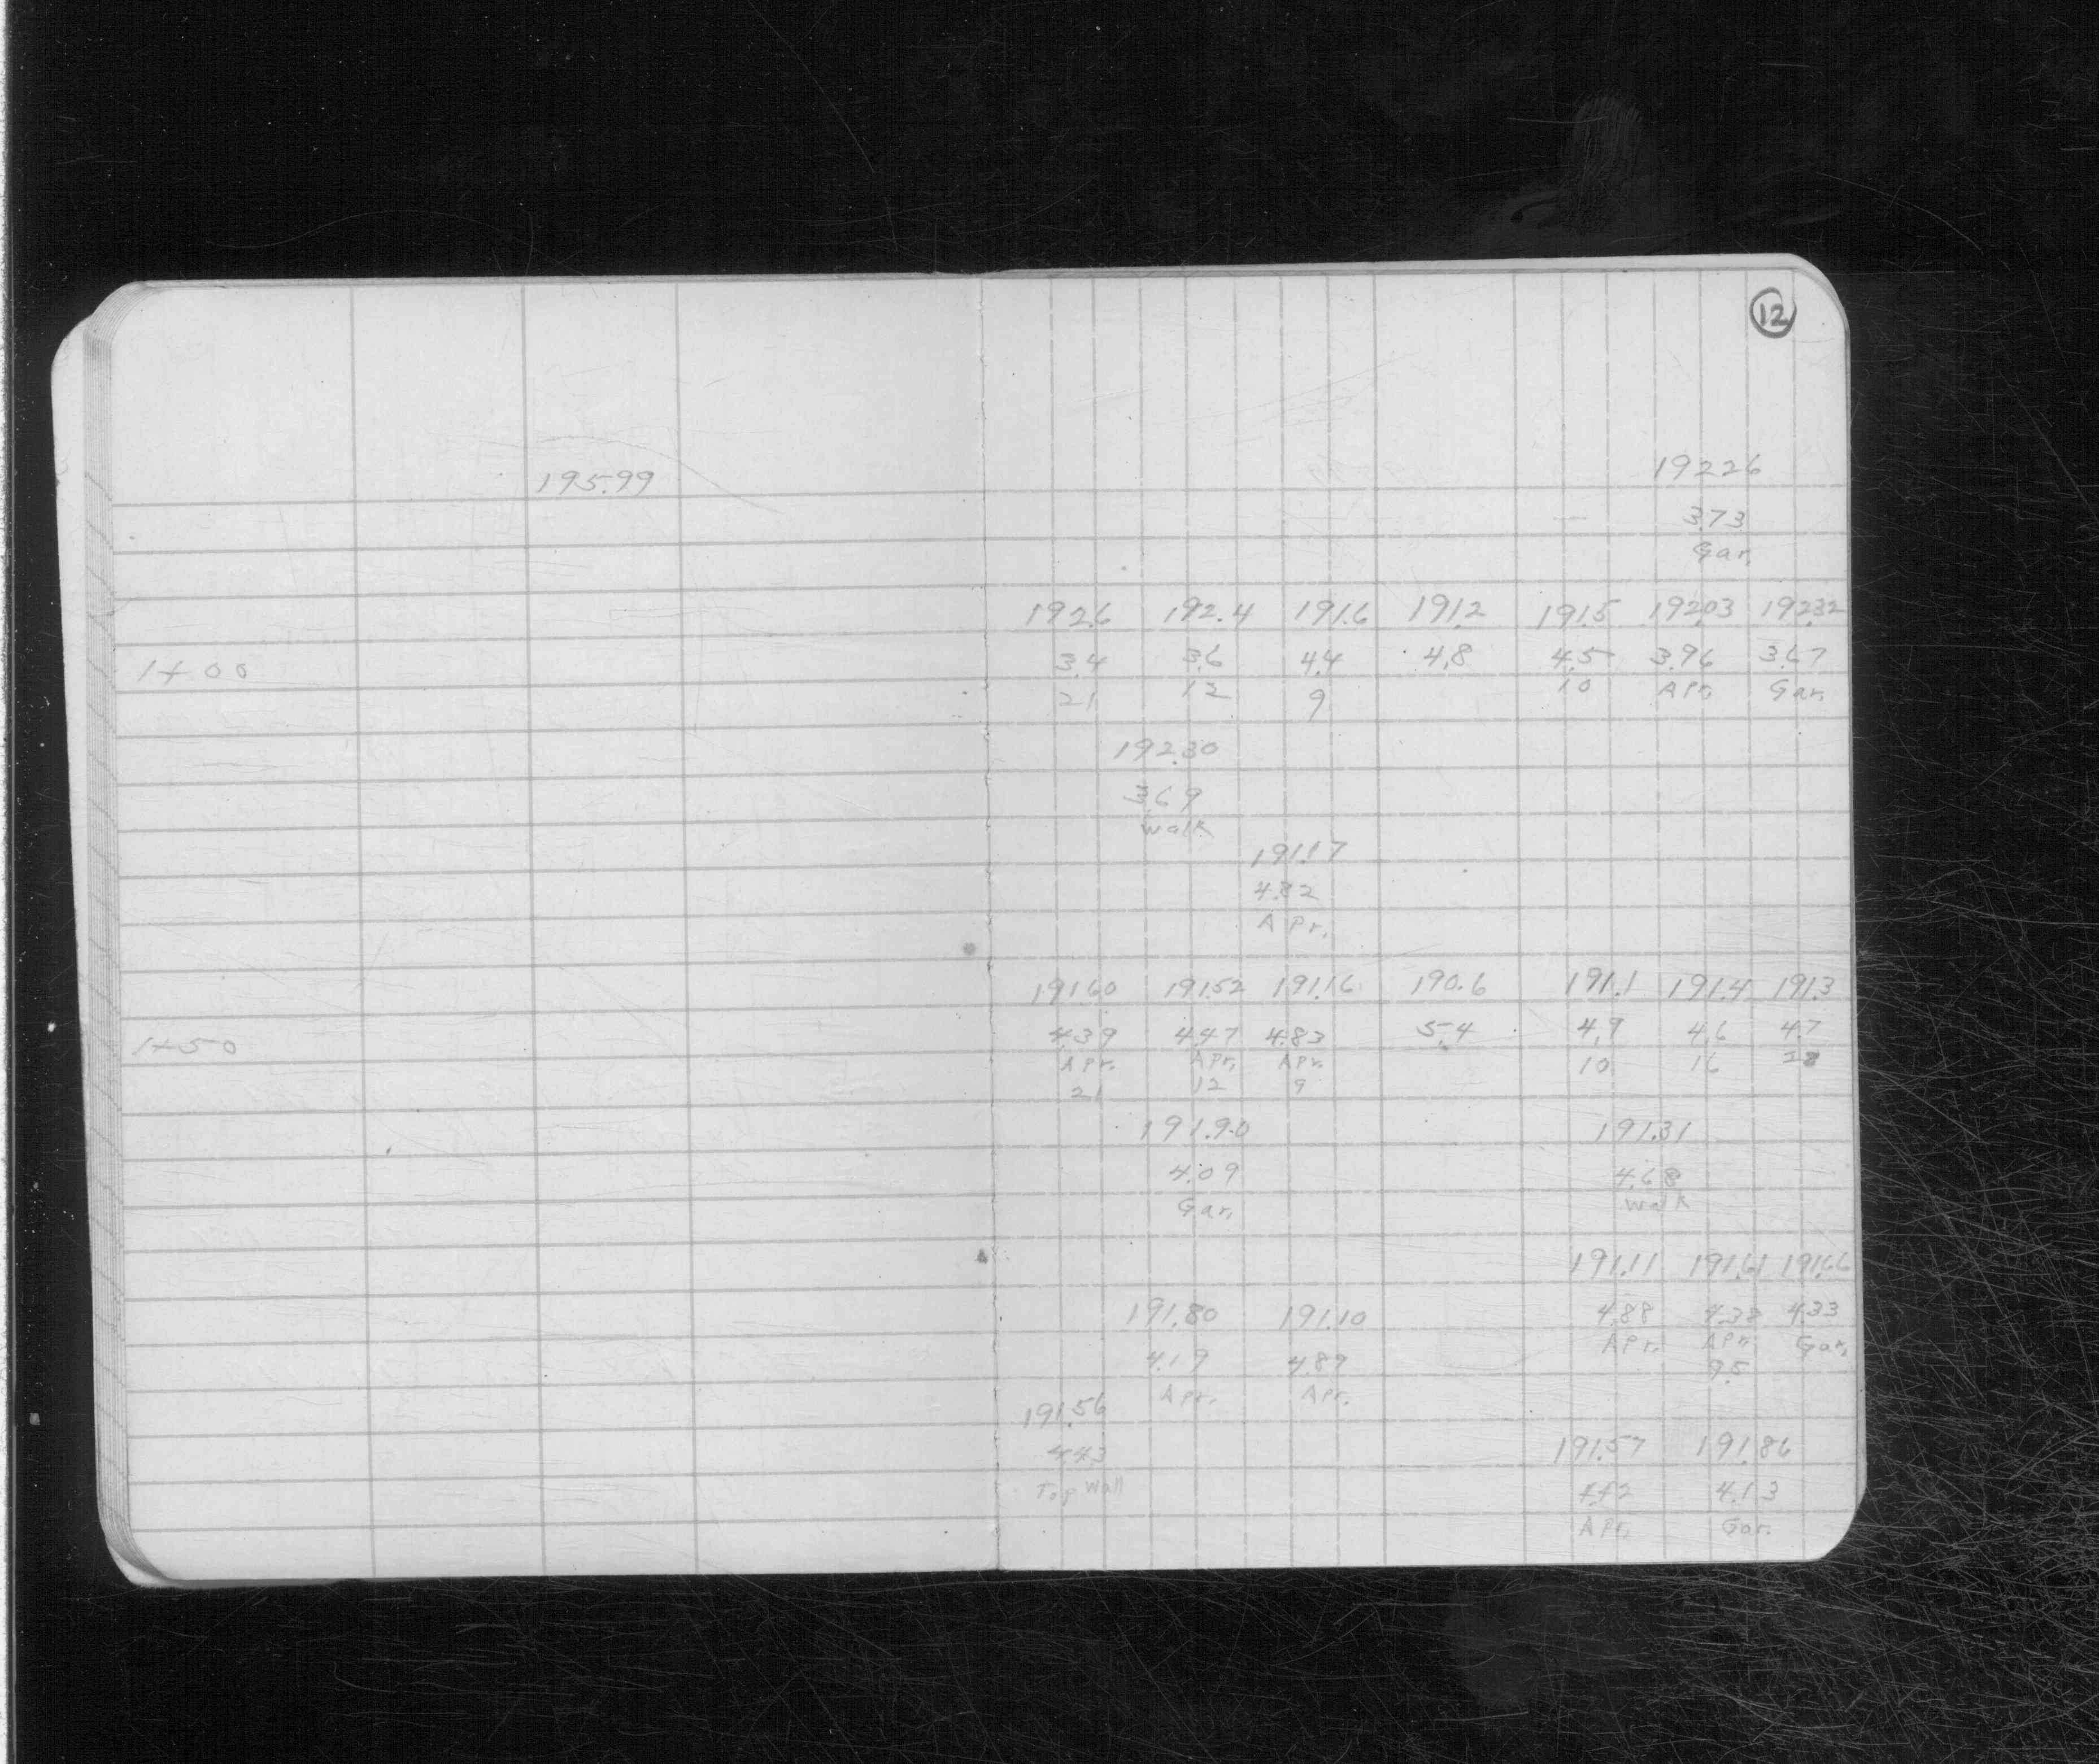 12
195.99 19226
3.73
Gar.
192.6 192.4 191.6 191.2 191.5 192.03 192.32
1+00 3.4 3.6 4.4 4.8 4.5 3.96 3.67
21 12 9 10 Apr. Gar.
192.30
3.69
Walk
191.17
4.82
Apr.
191.60 191.52 191.16 190.6 191.1 191.4 191.3
1+50 4.39 4.47 4.83 5.4 4.9 4.6 4.7
Apr. Apr. Apr. 10 16 18
21 12 9
191.90 191.31
4.09 4.68
Gar. Walk
191.11 191.61 191.66
191.80 191.10 4.88 4.38 4.33
Apr. Apr. Gar.
4.19 4.89 9.5
Apr. Apr.
191.56
4.43 191.57 191.86
Top Wall 4.42 4.13
Apr. Gar.